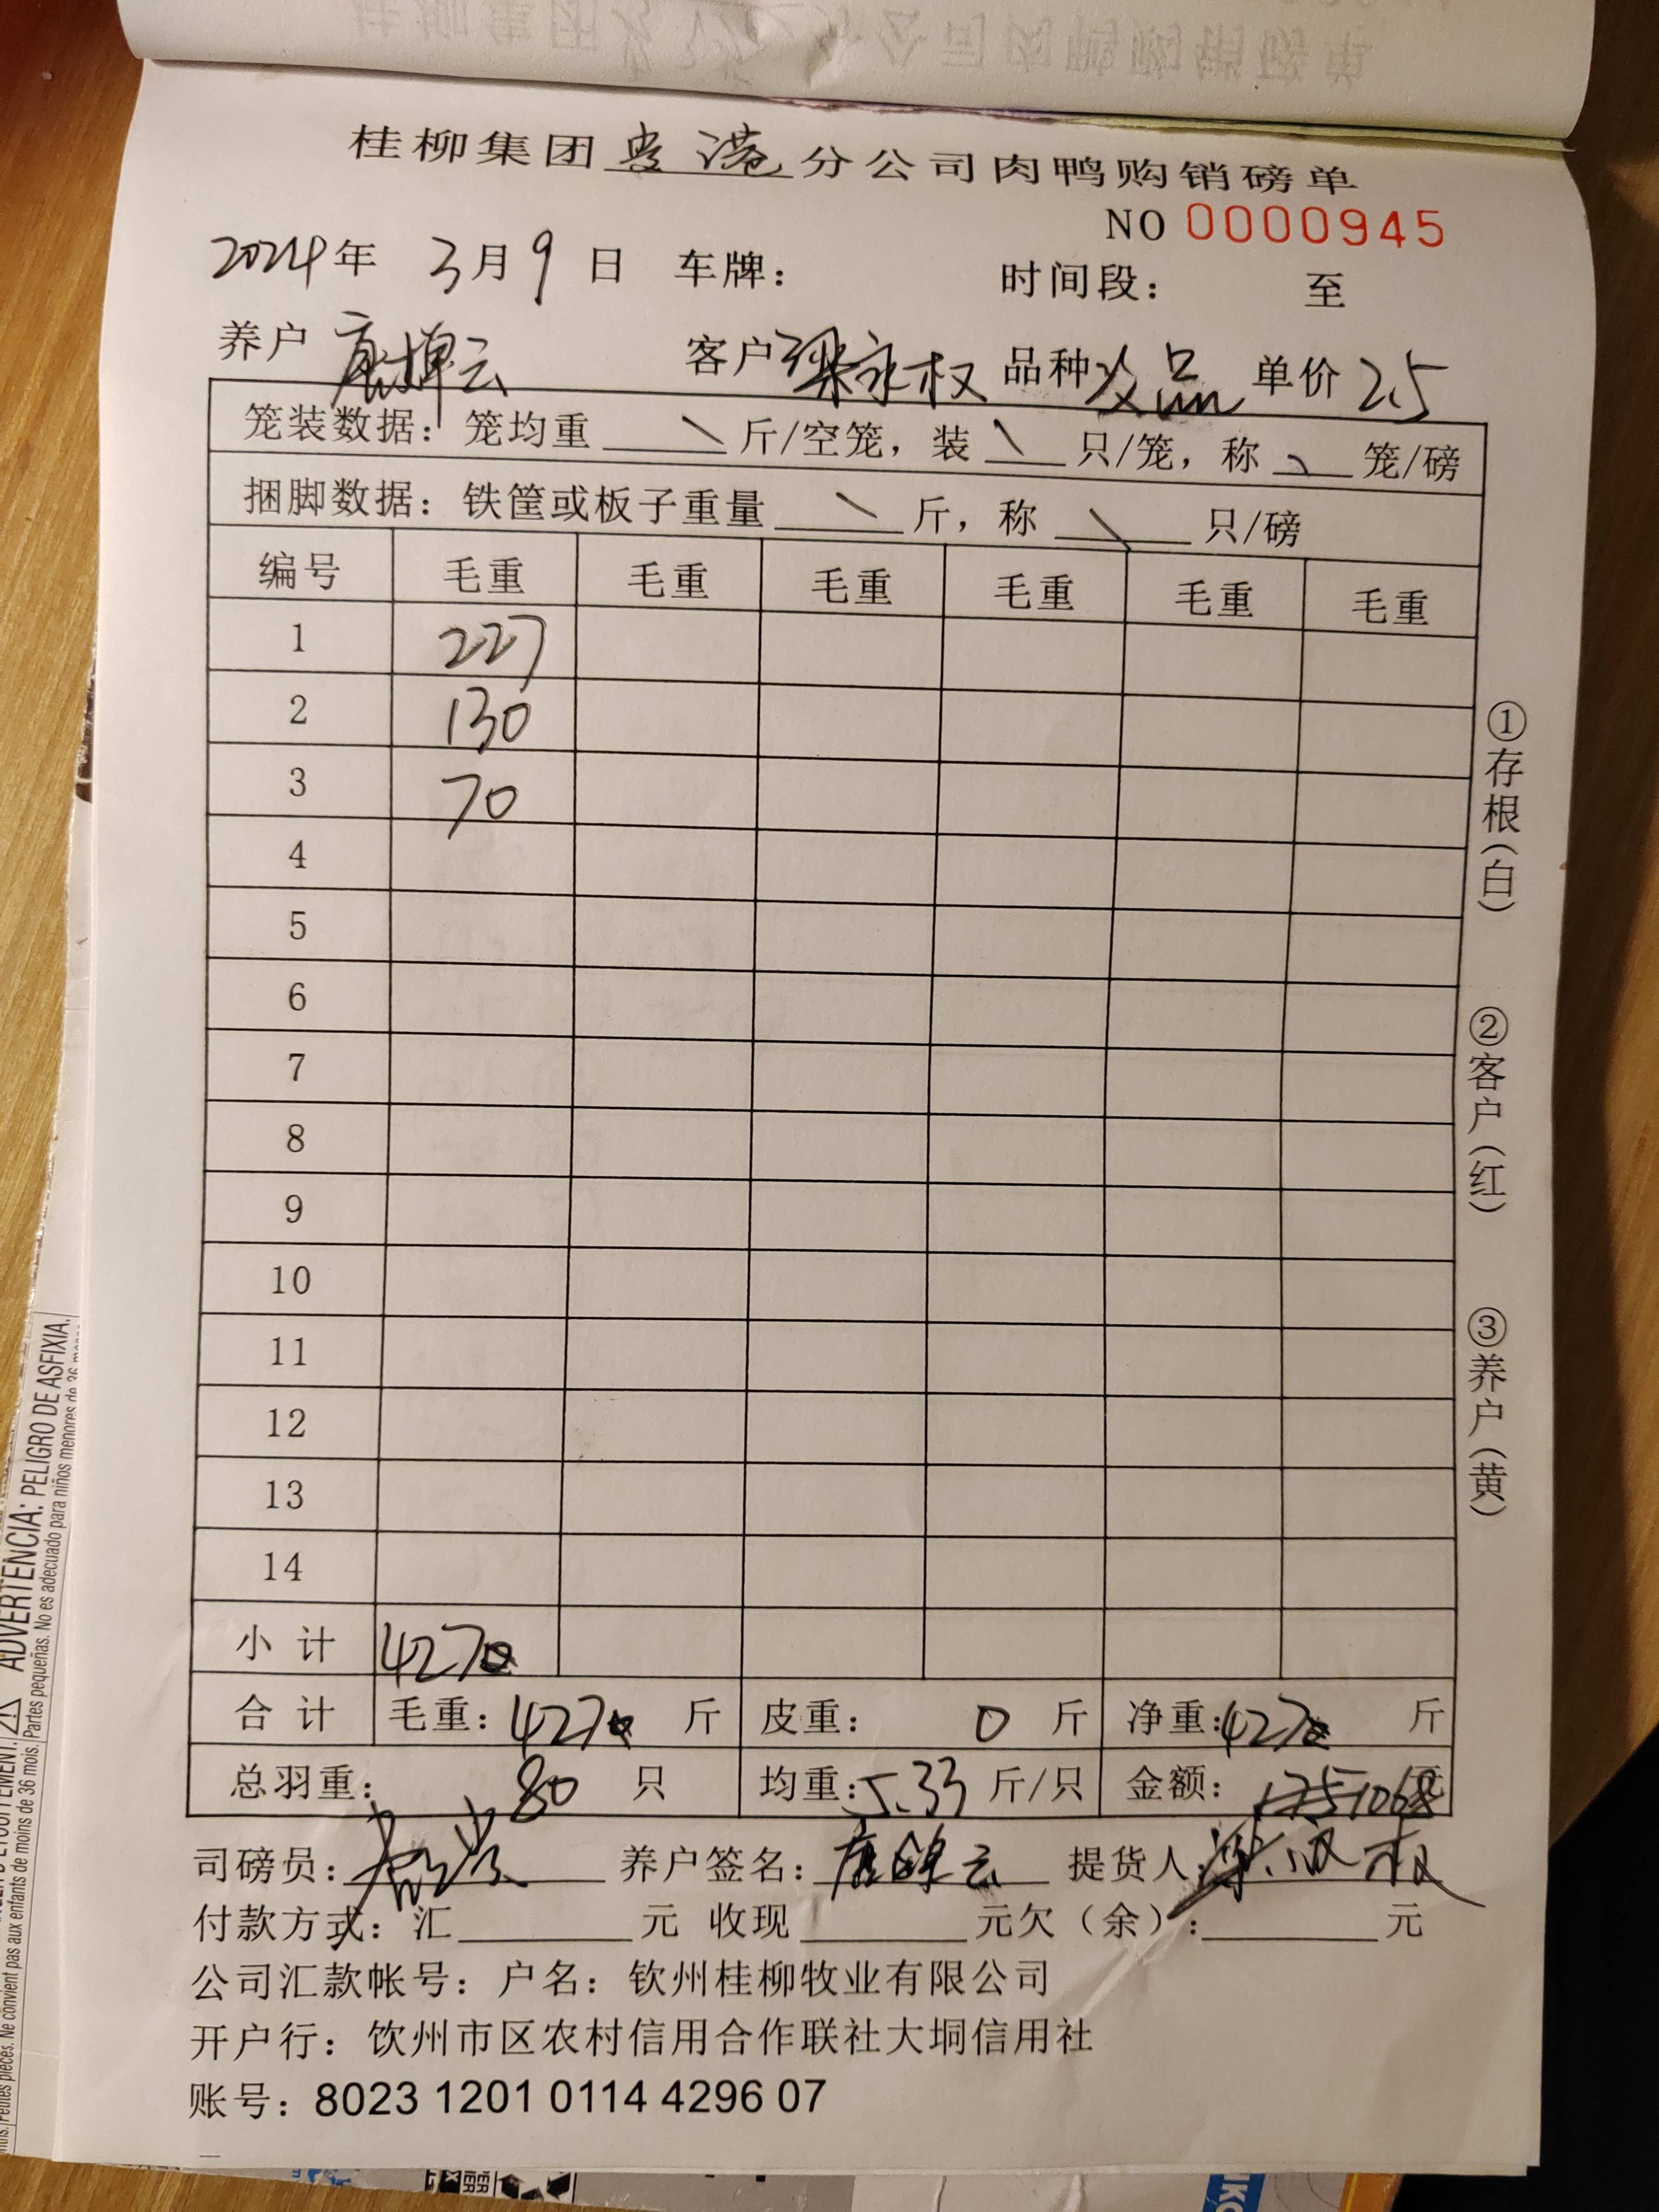 桂柳集团贵港分公司肉鸭购销磅单
NO 0000945
2024年 3月9日 车牌： 时间段： 至
养户 客户梁永权 品种次品 单价2.5
笼装数据：笼均重 斤/空笼，装 只/笼，称 笼/磅
捆脚数据：铁筐或板子重量 斤，称 只/磅
编号 毛重 毛重 毛重 毛重 毛重 毛重
1 227
2 130
3 70
4
5
6
7
8
9
10
11
12
13
14
小计 427
合计 毛重：427 斤 皮重： 0 斤 净重：427 斤
总羽重： 80 只 均重：5.33 斤/只 金额： 1068
司磅员： 养户签名： 提货人：
付款方式：汇 元 收现 元欠（余）： 元
公司汇款帐号：户名：钦州桂柳牧业有限公司
开户行：钦州市区农村信用合作联社大垌信用社
账号：8023 1201 0114 4296 07
①存根（白）
②客户（红）
③养户（黄）
ADVERTENCIA: PELIGRO DE ASFIXIA.
Partes pequeñas. No es adecuado para niños menores de 36
Petites pièces. Ne convient pas aux enfants de moins de 36 mois.